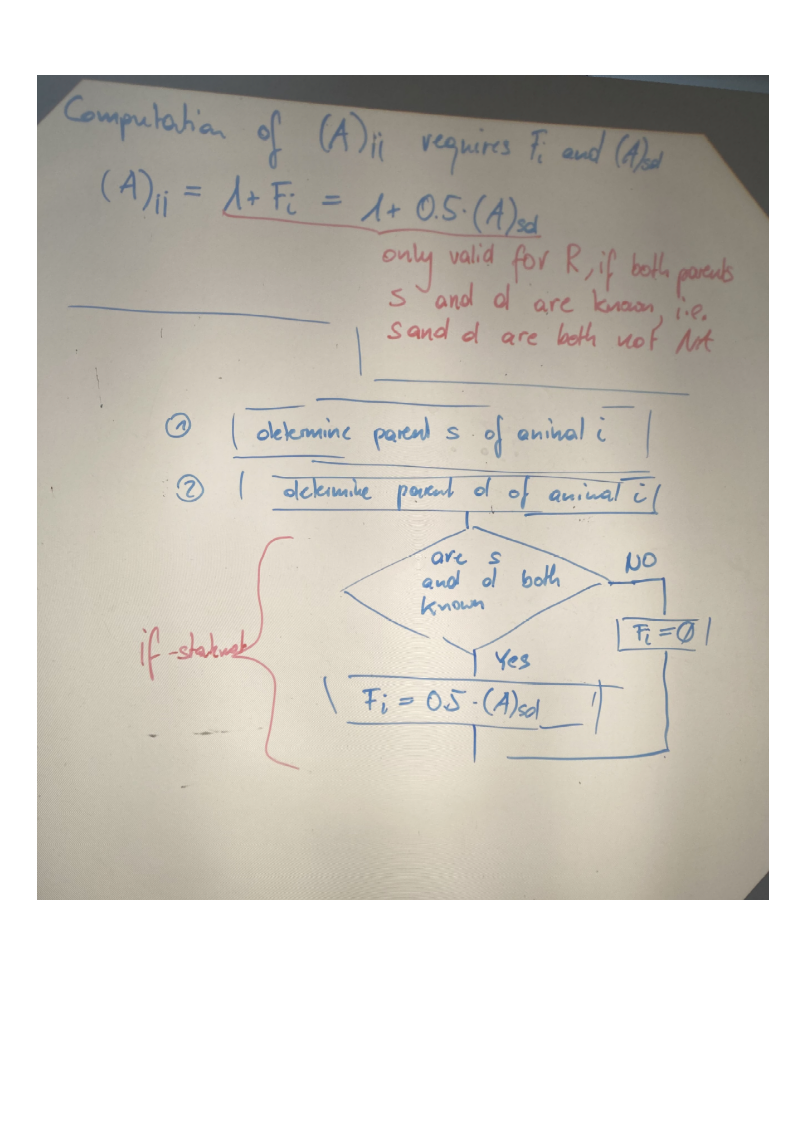 Computation of (A)ii requires Fi and (A)sd
(A)ii = 1 + Fi = 1 + 0.5·(A)sd
only valid for R, if both parents
s and d are known, i.e.
s and d are both not NA
① determine parent s of animal i
② determine parent d of animal i
are s
and d both
known
NO
Fi = Ø
if-statement
Yes
Fi = 0.5·(A)sd